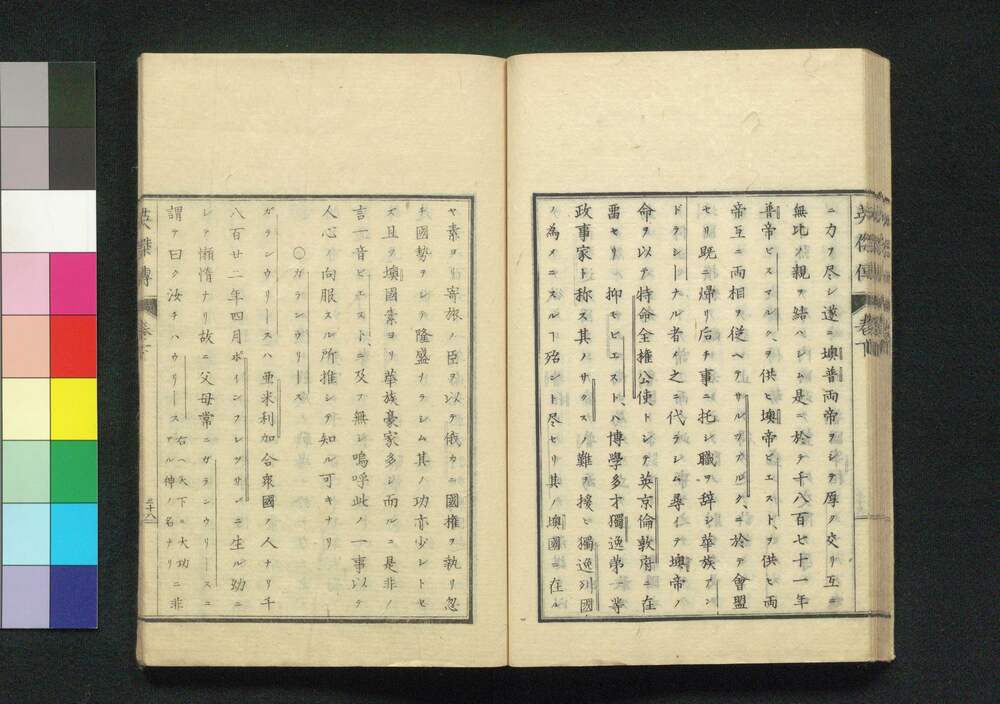 ニ力ヲ尽シ遂ニ墺普両帝ヲシテ厚ク交リ互ニ
無比ノ親ヲ結ヘシム是ニ於テ千八百七十一年
普帝ビスマルクヲ供ヒ墺帝ビエストヲ供ヒ両
帝互ニ両相ヲ従ヘテサルツブルグニ於テ會盟
セリ既ニ帰リ后チ事ニ托シ職ヲ辞シ華族カン
ドラシナル者イ之ニ代ラシム尋イテ墺帝ノ
命ヲ以テ特命全権公使トシテ英京倫敦府ニ在
畱セリ抑モビエストハ博學多才獨逸第一等
政事家ト称ス其ノサクスノ難ヲ援ヒ獨逸列國
ノ為メニスルヿ殆ント尽セリ其ノ墺國ニ在ル
ヤ素ヨリ寄旅ノ臣ヲ以テ俄カニ國権ヲ執リ忽
チ國勢ヲシテ隆盛ナラシム其ノ功亦少シトセ
ズ且ツ墺國素ヨリ華族豪家多シ而ルニ是非ノ
言一音ビエストニ及フ無シ嗚呼此ノ一事以テ
人心ノ向服スル所推シテ知ル可キナリ
〇ガランウリース
ガランウリースハ亜米利加合衆國ノ人ナリ千
八百廿二年四月ポインプレツサンニ生ル幼ニ
シテ懶惰ナリ故ニ父母常ニガランウリースニ
謂テ曰ク汝チハウリースアル伸ノ名ナリ
右ヘ天下ニ大功
ニ非
英傑傳 巻下
三十八